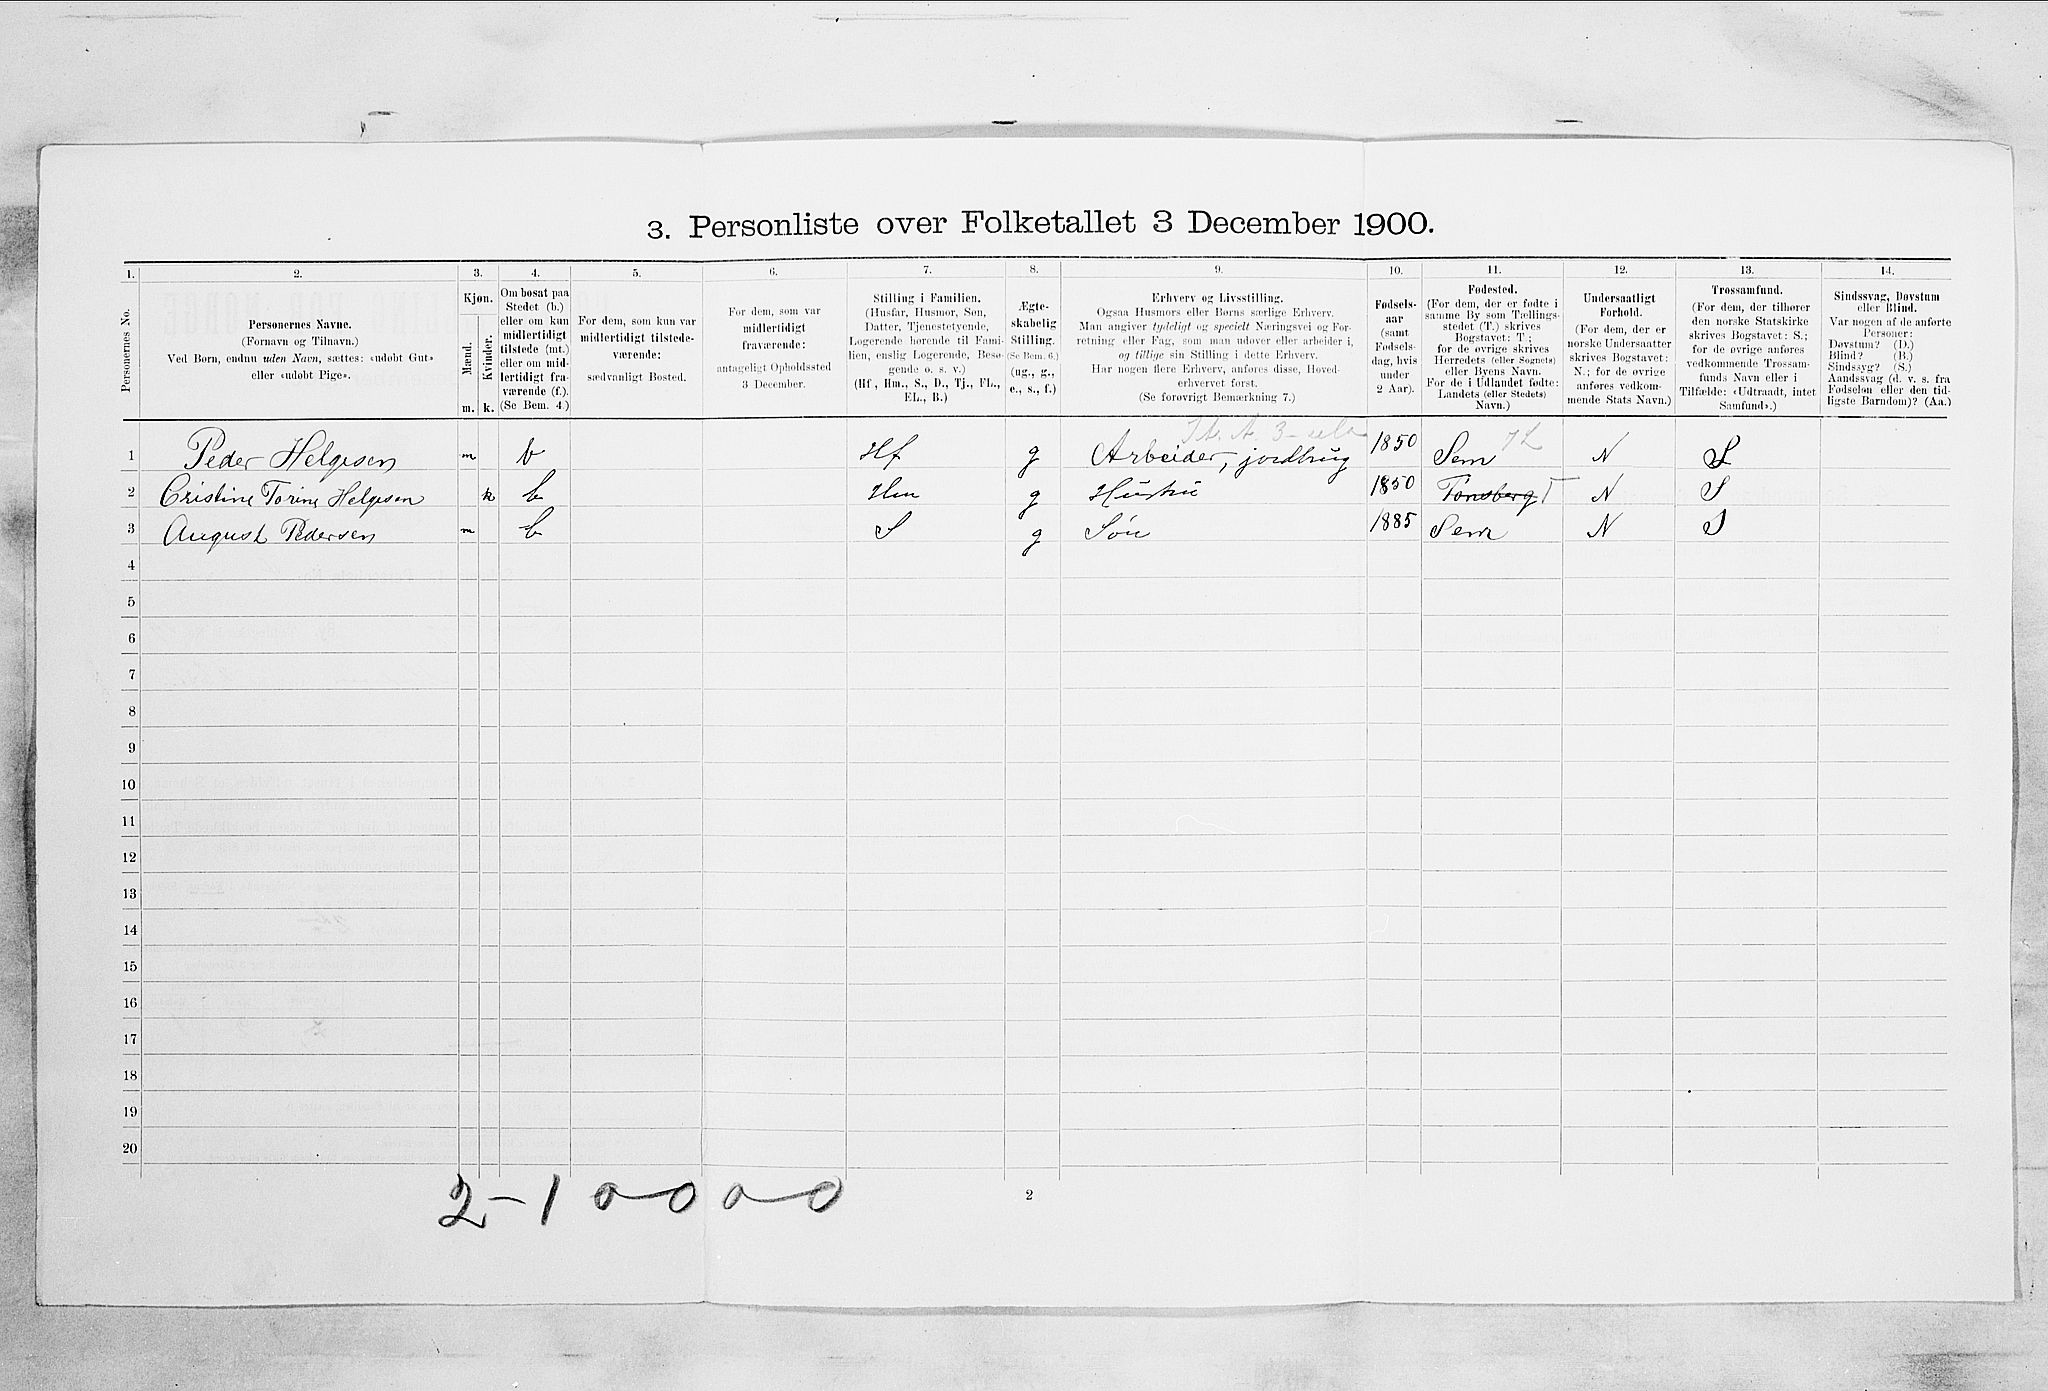 3. Personliste over Folketallet 3 December 1900.
1. 2. 3. 4. 5. 6. 7. 8. 9. 10. 11. 12. 13. 14.
Personernes No.
Personernes Navne.
(Fornavn og Tilnavn.)
Ved Børn, endnu uden Navn, sættes: «udøbt Gut»
eller «udøbt Pige».
Kjøn.
Mænd.
Kvinder.
m. k.
Om bosat paa
Stedet (b.)
eller om kun
midlertidigt
tilstede (mt.)
eller om mid-
lertidigt fra-
værende (f.).
(Se Bem. 4.)
For dem, som kun var
midlertidigt tilstede-
værende:
sædvanligt Bosted.
For dem, som var
midlertidigt
fraværende:
antageligt Opholdssted
3 December.
Stilling i Familien.
(Husfar, Husmor, Søn,
Datter, Tjenestetyende,
Logerende hørende til Fami-
lien, enslig Logerende, Besø-
gende o. s. v.)
(Hf., Hm., S., D., Tj., FL.,
EL., B.)
Ægte-
skabelig
Stilling.
(Se Bem. 6.)
(ug., g.,
e., s., f.)
Erhverv og Livsstilling.
Ogsaa Husmors eller Børns særlige Erhverv.
Man angiver tydeligt og specielt Næringsvei og For-
retning eller Fag, som man udøver eller arbeider i,
og tillige sin Stilling i dette Erhverv.
Har nogen flere Erhverv, anføres disse, Hoved-
erhvervet først.
(Se forøvrigt Bemærkning 7.)
Fødsels-
aar
(samt
Fødsels-
dag, hvis
under
2 Aar).
Fødested.
(For dem, der er fødte i
samme By som Tællings-
stedet (T.) skrives
Bogstavet: T.;
for de øvrige skrives
Herredets (eller Sognets)
eller Byens Navn.
For de i Udlandet fødte:
Landets (eller Stedets)
Navn.)
Undersaatligt
Forhold.
(For dem, der er
norske Undersaatter
skrives Bogstavet:
N.; for de øvrige
anføres vedkom-
mende Stats Navn.)
Trossamfund.
(For dem, der tilhører
den norske Statskirke
skrives Bogstavet: S.;
for de øvrige anføres
vedkommende Trossam-
funds Navn eller i
Tilfælde: «Udtraadt, intet
Samfund».)
Sindssvag, Døvstum
eller Blind.
Var nogen af de anførte
Personer:
Døvstum? (D.)
Blind? (B.)
Sindssyg? (S.)
Aandssvag (d. v. s. fra
Fødselen eller den tid-
ligste Barndom)? (Aa.)
1 Peder Helgesen m b Hf g Arbeider, jordbrug 1850 Sem N S
2 Cristine Torine Helgesen k b Hm g Hustru 1850 Tønsberg T N S
3 August Pedersen m b S g Søn 1885 Sem N S
4
5
6
7
8
9
10
11
12
13
14
15
16
17
18
19
20
2-1 0-0 0-0
2